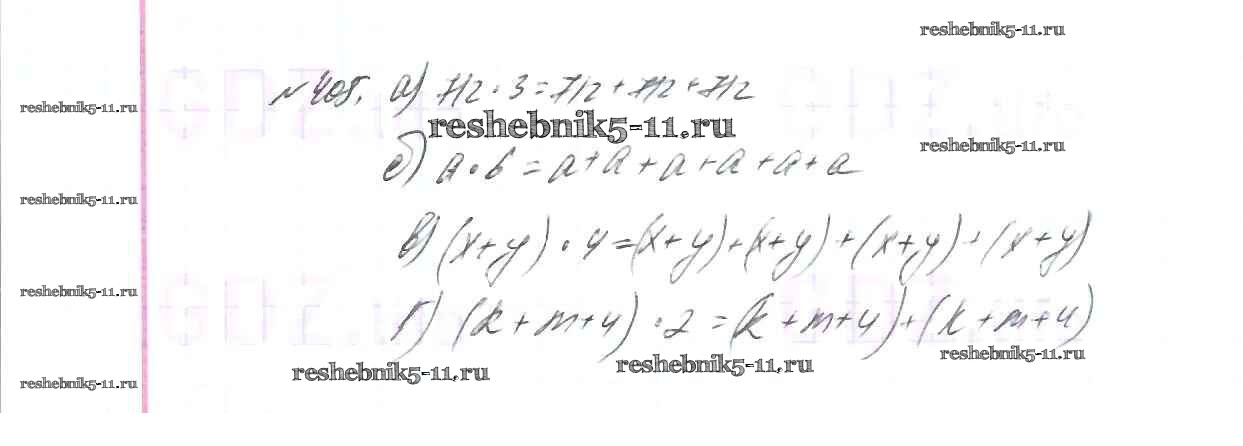 reshebnik5-11.ru
№ 405. а) 712 · 3 = 712 + 712 + 712
reshebnik5-11.ru
reshebnik5-11.ru
reshebnik5-11.ru
б) a · 6 = a + a + a + a + a + a
reshebnik5-11.ru
в) (x + y) · 4 = (x + y) + (x + y) + (x + y) + (x + y)
reshebnik5-11.ru
г) (k + m + 4) · 2 = (k + m + 4) + (k + m + 4)
reshebnik5-11.ru
reshebnik5-11.ru
reshebnik5-11.ru
reshebnik5-11.ru